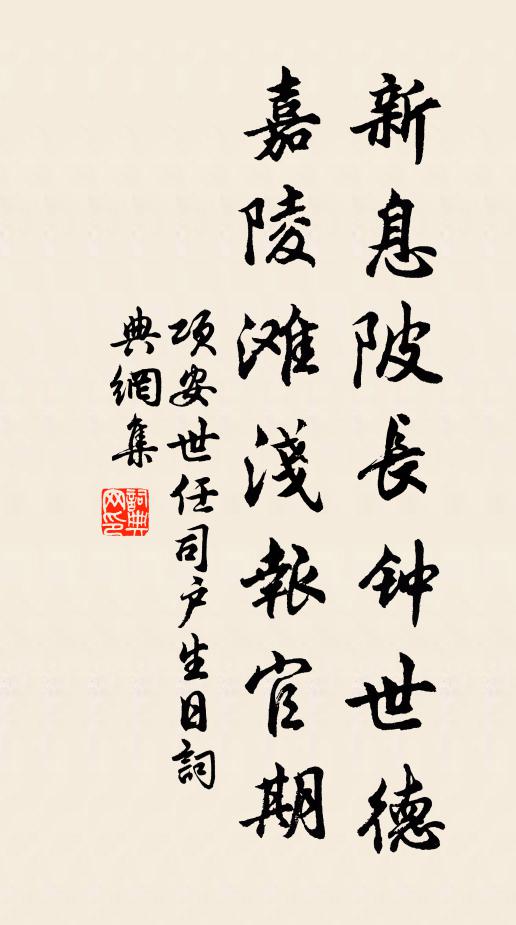 新息陂長钟世德
嘉陵滩淺報官期
项安世任司户生日詞
典網集
詞典网印